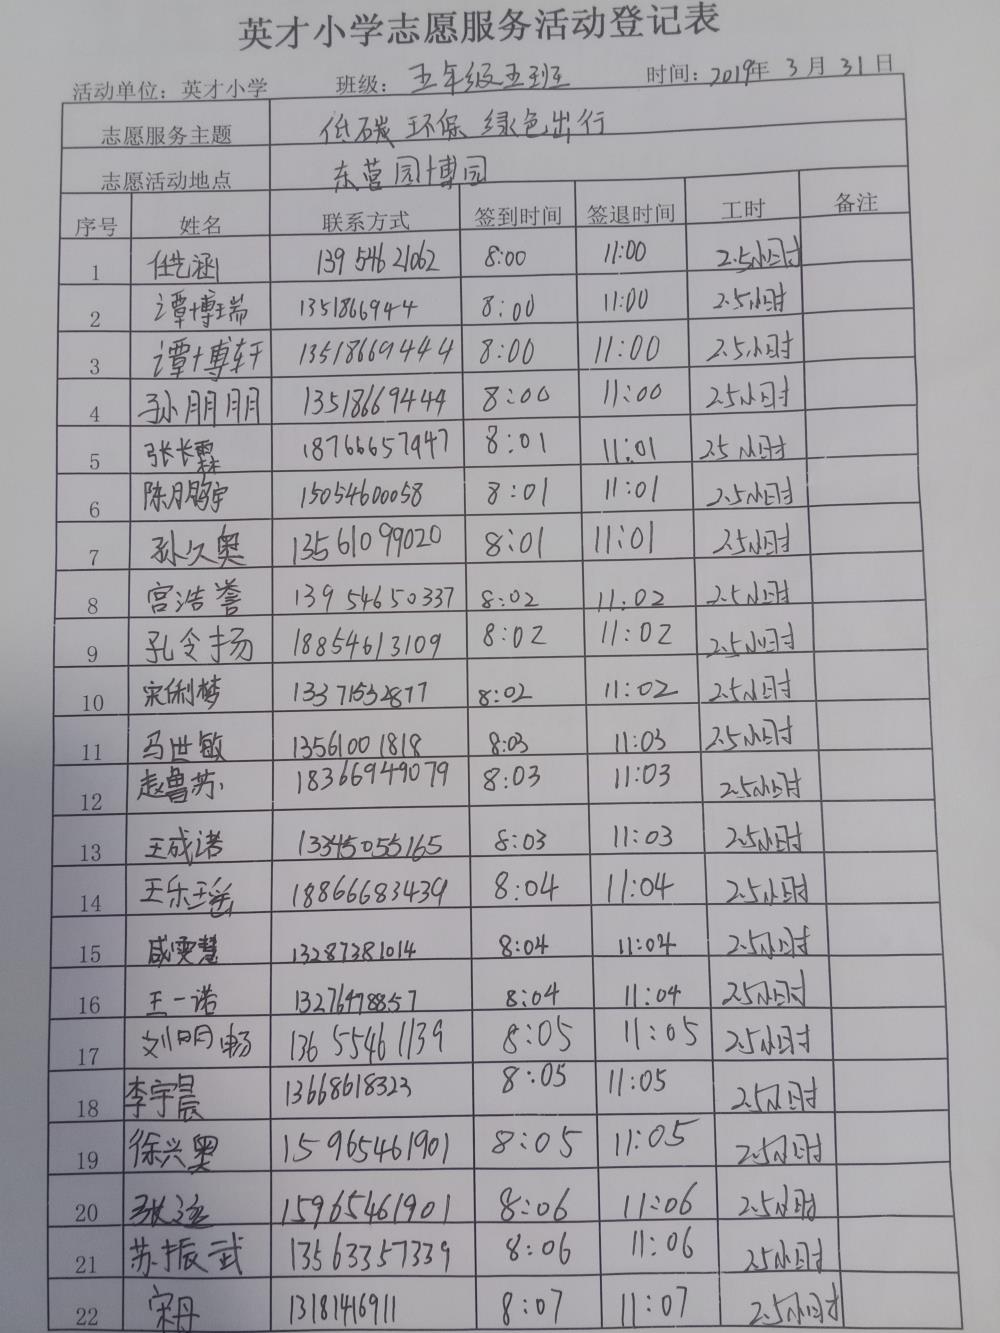 英才小学志愿服务活动登记表
活动单位：英才小学 班级：五年级五班 时间：2019年3月31日
志愿服务主题 低碳环保 绿色出行
志愿活动地点 东营园博园
序号 姓名 联系方式 签到时间 签退时间 工时 备注
1 任艺涵 13954621062 8:00 11:00 2.5小时
2 谭博瑞 1351866944 8:00 11:00 2.5小时
3 谭博轩 13518669444 8:00 11:00 2.5小时
4 孙朋朋 13518669444 8:00 11:00 2.5小时
5 张长霖 18766657947 8:01 11:01 2.5小时
6 陈鹏宇 15054600058 8:01 11:01 2.5小时
7 孙久奥 13561099020 8:01 11:01 2.5小时
8 宫浩誉 13954650337 8:02 11:02 2.5小时
9 孔令扬 18854613109 8:02 11:02 2.5小时
10 宋俐梦 13371532877 8:02 11:02 2.5小时
11 马世敏 13561001818 8:03 11:03 2.5小时
12 赵鲁苏 18366949079 8:03 11:03 2.5小时
13 王成诺 13345055165 8:03 11:03 2.5小时
14 王乐瑶 18866683439 8:04 11:04 2.5小时
15 咸雯慧 13287381014 8:04 11:04 2.5小时
16 王一诺 13276478857 8:04 11:04 2.5小时
17 刘明畅 13655461139 8:05 11:05 2.5小时
18 李宇晨 13668618323 8:05 11:05 2.5小时
19 徐兴奥 15965461901 8:05 11:05 2.5小时
20 15965461901 8:06 11:06 2.5小时
21 苏振武 13563357339 8:06 11:06 2.5小时
22 宋丹 13181416911 8:07 11:07 2.5小时